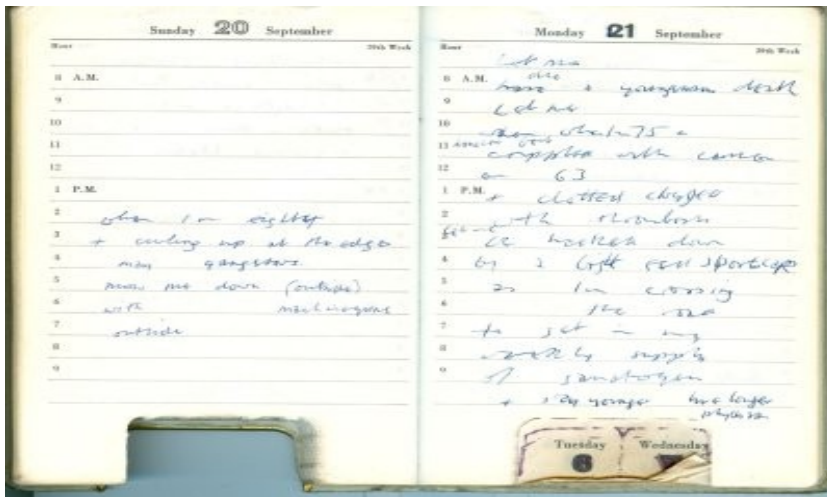 Sunday 20 September
Hour 39th Week
8 A.M.
9
10
11
12
1 P.M.
2 when I'm eighty
3 + curling up at the edges
4 may gangsters
5 mow me down (outside)
6 with machineguns
7 outside
8
9
Monday 21 September
Hour 39th Week
Let me
8 A.M. die a youngmans death
9 Let me
10 when I'm 75
11 crippled with cancer
12 or 63
1 P.M. + clotted
2 with thrombosis
3 be knocked down
4 by a sportscar
5 as I'm crossing
6 the road
7 to get in my
8 weekly supply
9 of sanatogen
+ stay younger longer
Tuesday Wednesday
6